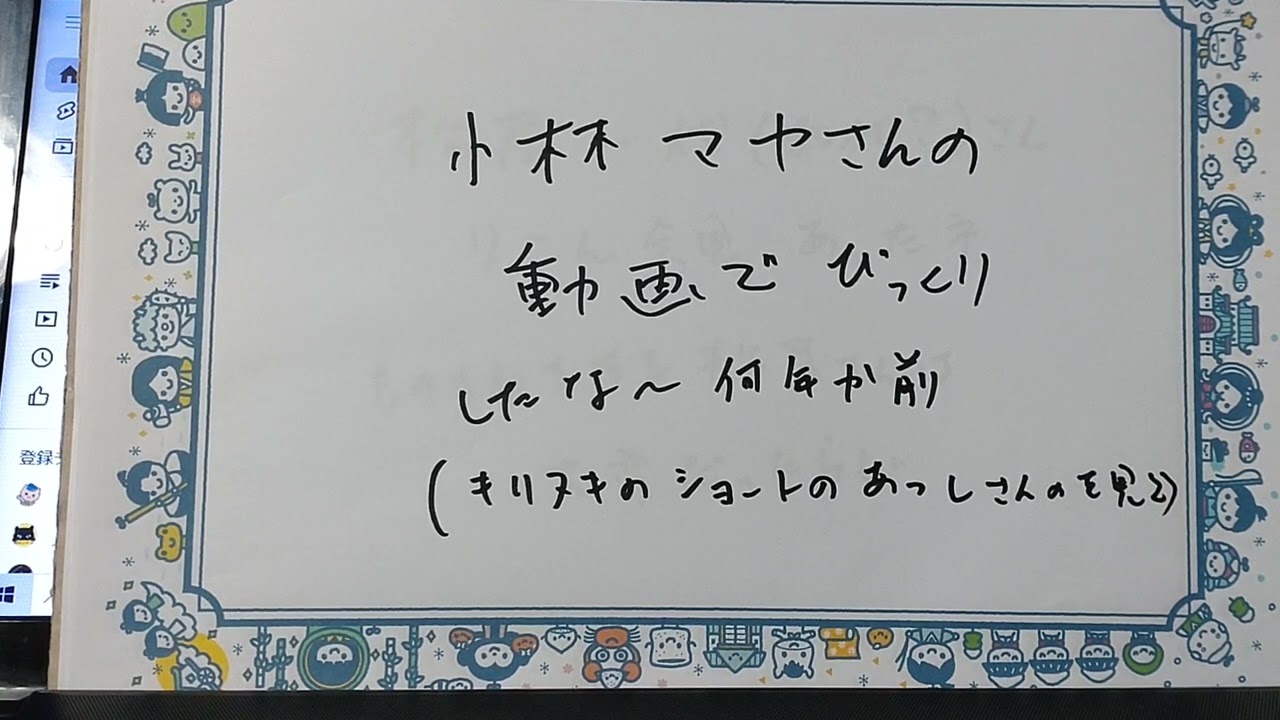 小林マヤさんの
動画でびっくり
したな〜何年か前
(キリヌキのショートのあっしさんのを見て)
登録チ